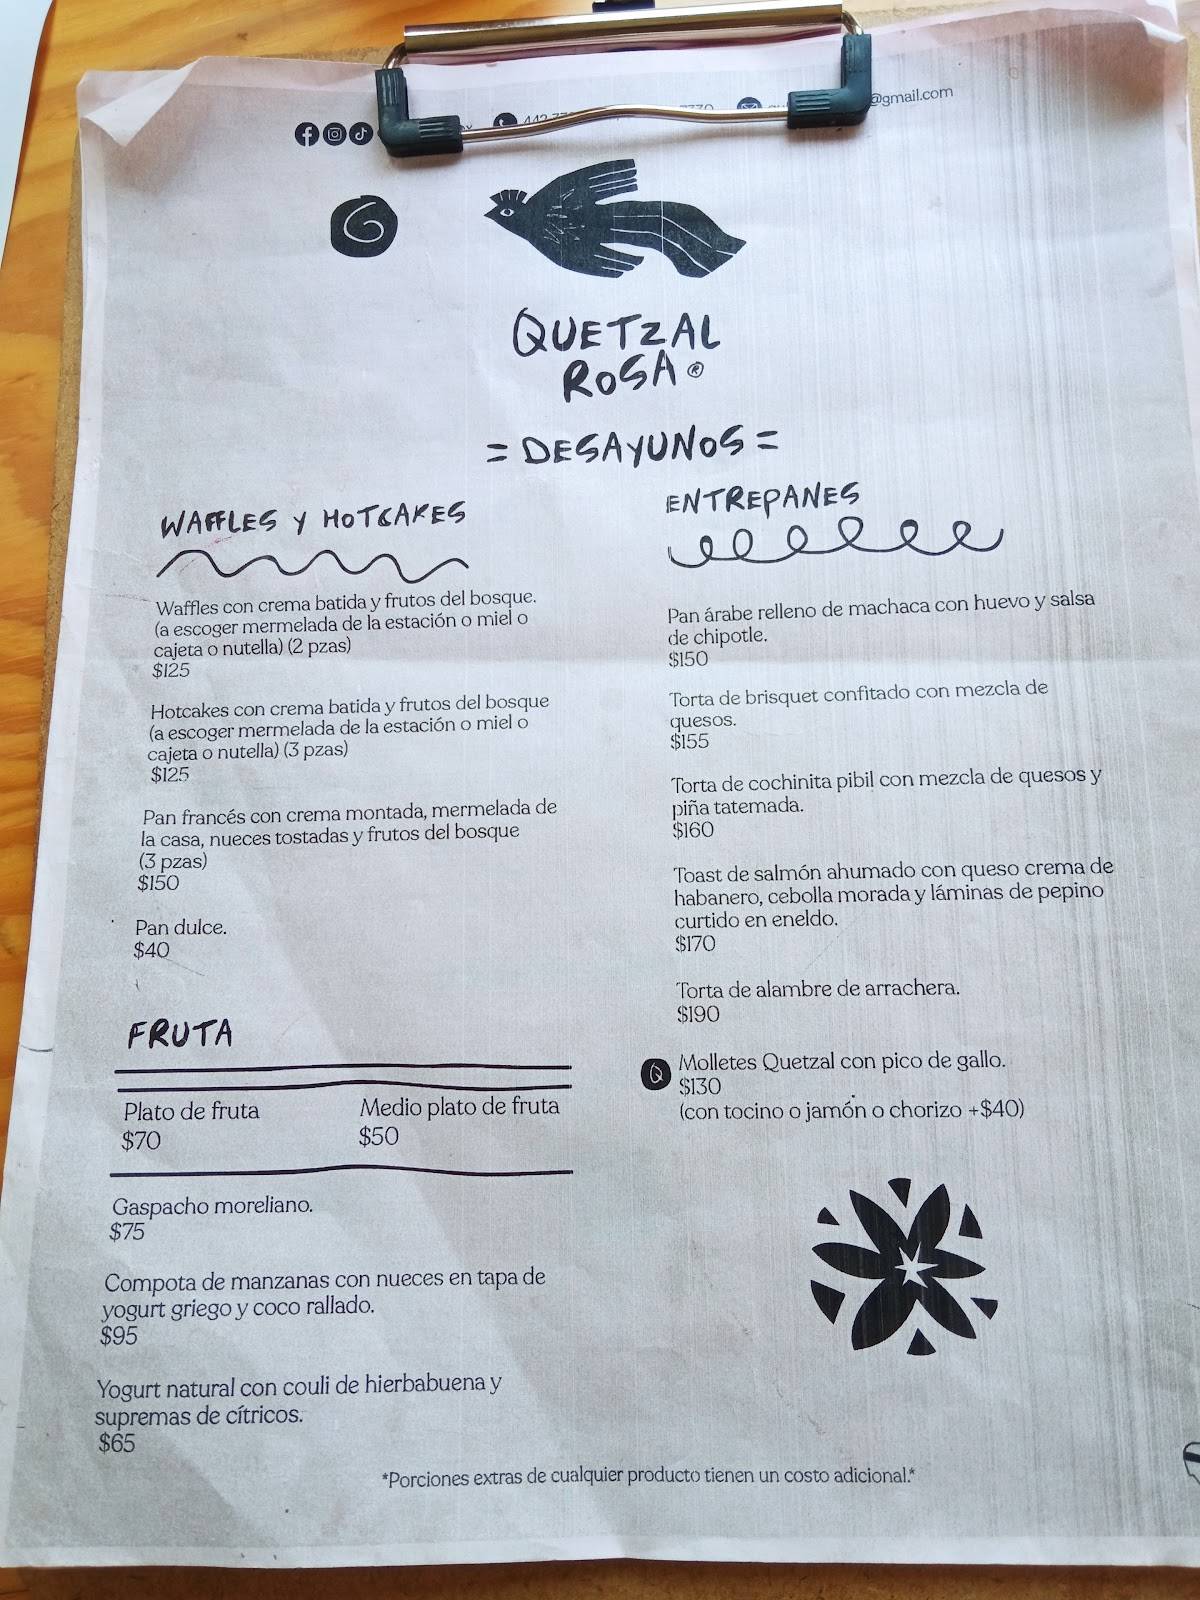 @gmail.com
QUETZAL
ROSA ®
= DESAYUNOS =
WAFFLES Y HOTCAKES
Waffles con crema batida y frutos del bosque.
(a escoger mermelada de la estación o miel o
cajeta o nutella) (2 pzas)
$125
Hotcakes con crema batida y frutos del bosque
(a escoger mermelada de la estación o miel o
cajeta o nutella) (3 pzas)
$125
Pan francés con crema montada, mermelada de
la casa, nueces tostadas y frutos del bosque
(3 pzas)
$150
Pan dulce.
$40
FRUTA
Plato de fruta
$70
Medio plato de fruta
$50
Gaspacho moreliano.
$75
Compota de manzanas con nueces en tapa de
yogurt griego y coco rallado.
$95
Yogurt natural con couli de hierbabuena y
supremas de cítricos.
$65
ENTREPANES
Pan árabe relleno de machaca con huevo y salsa
de chipotle.
$150
Torta de brisquet confitado con mezcla de
quesos.
$155
Torta de cochinita pibil con mezcla de quesos y
piña tatemada.
$160
Toast de salmón ahumado con queso crema de
habanero, cebolla morada y láminas de pepino
curtido en eneldo.
$170
Torta de alambre de arrachera.
$190
Q Molletes Quetzal con pico de gallo.
$130
(con tocino o jamón o chorizo +$40)
*Porciones extras de cualquier producto tienen un costo adicional.*